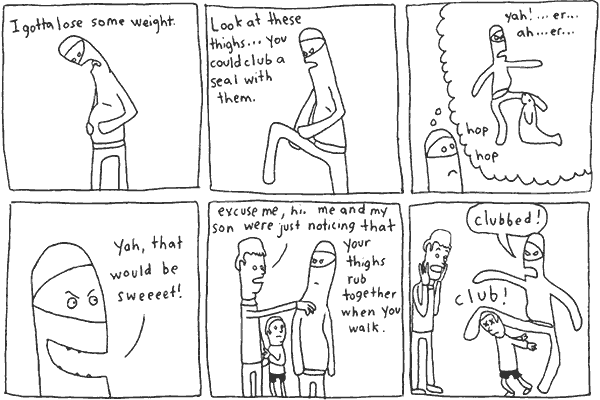 I gotta lose some weight.
Look at these
thighs... you
could club a
seal with
them.
yah! ... er...
ah ... er...
hop
hop
Yah, that
would be
sweeeet!
excuse me, hi. me and my
son were just noticing that
your
thighs
rub
together
when you
walk.
clubbed!
club!